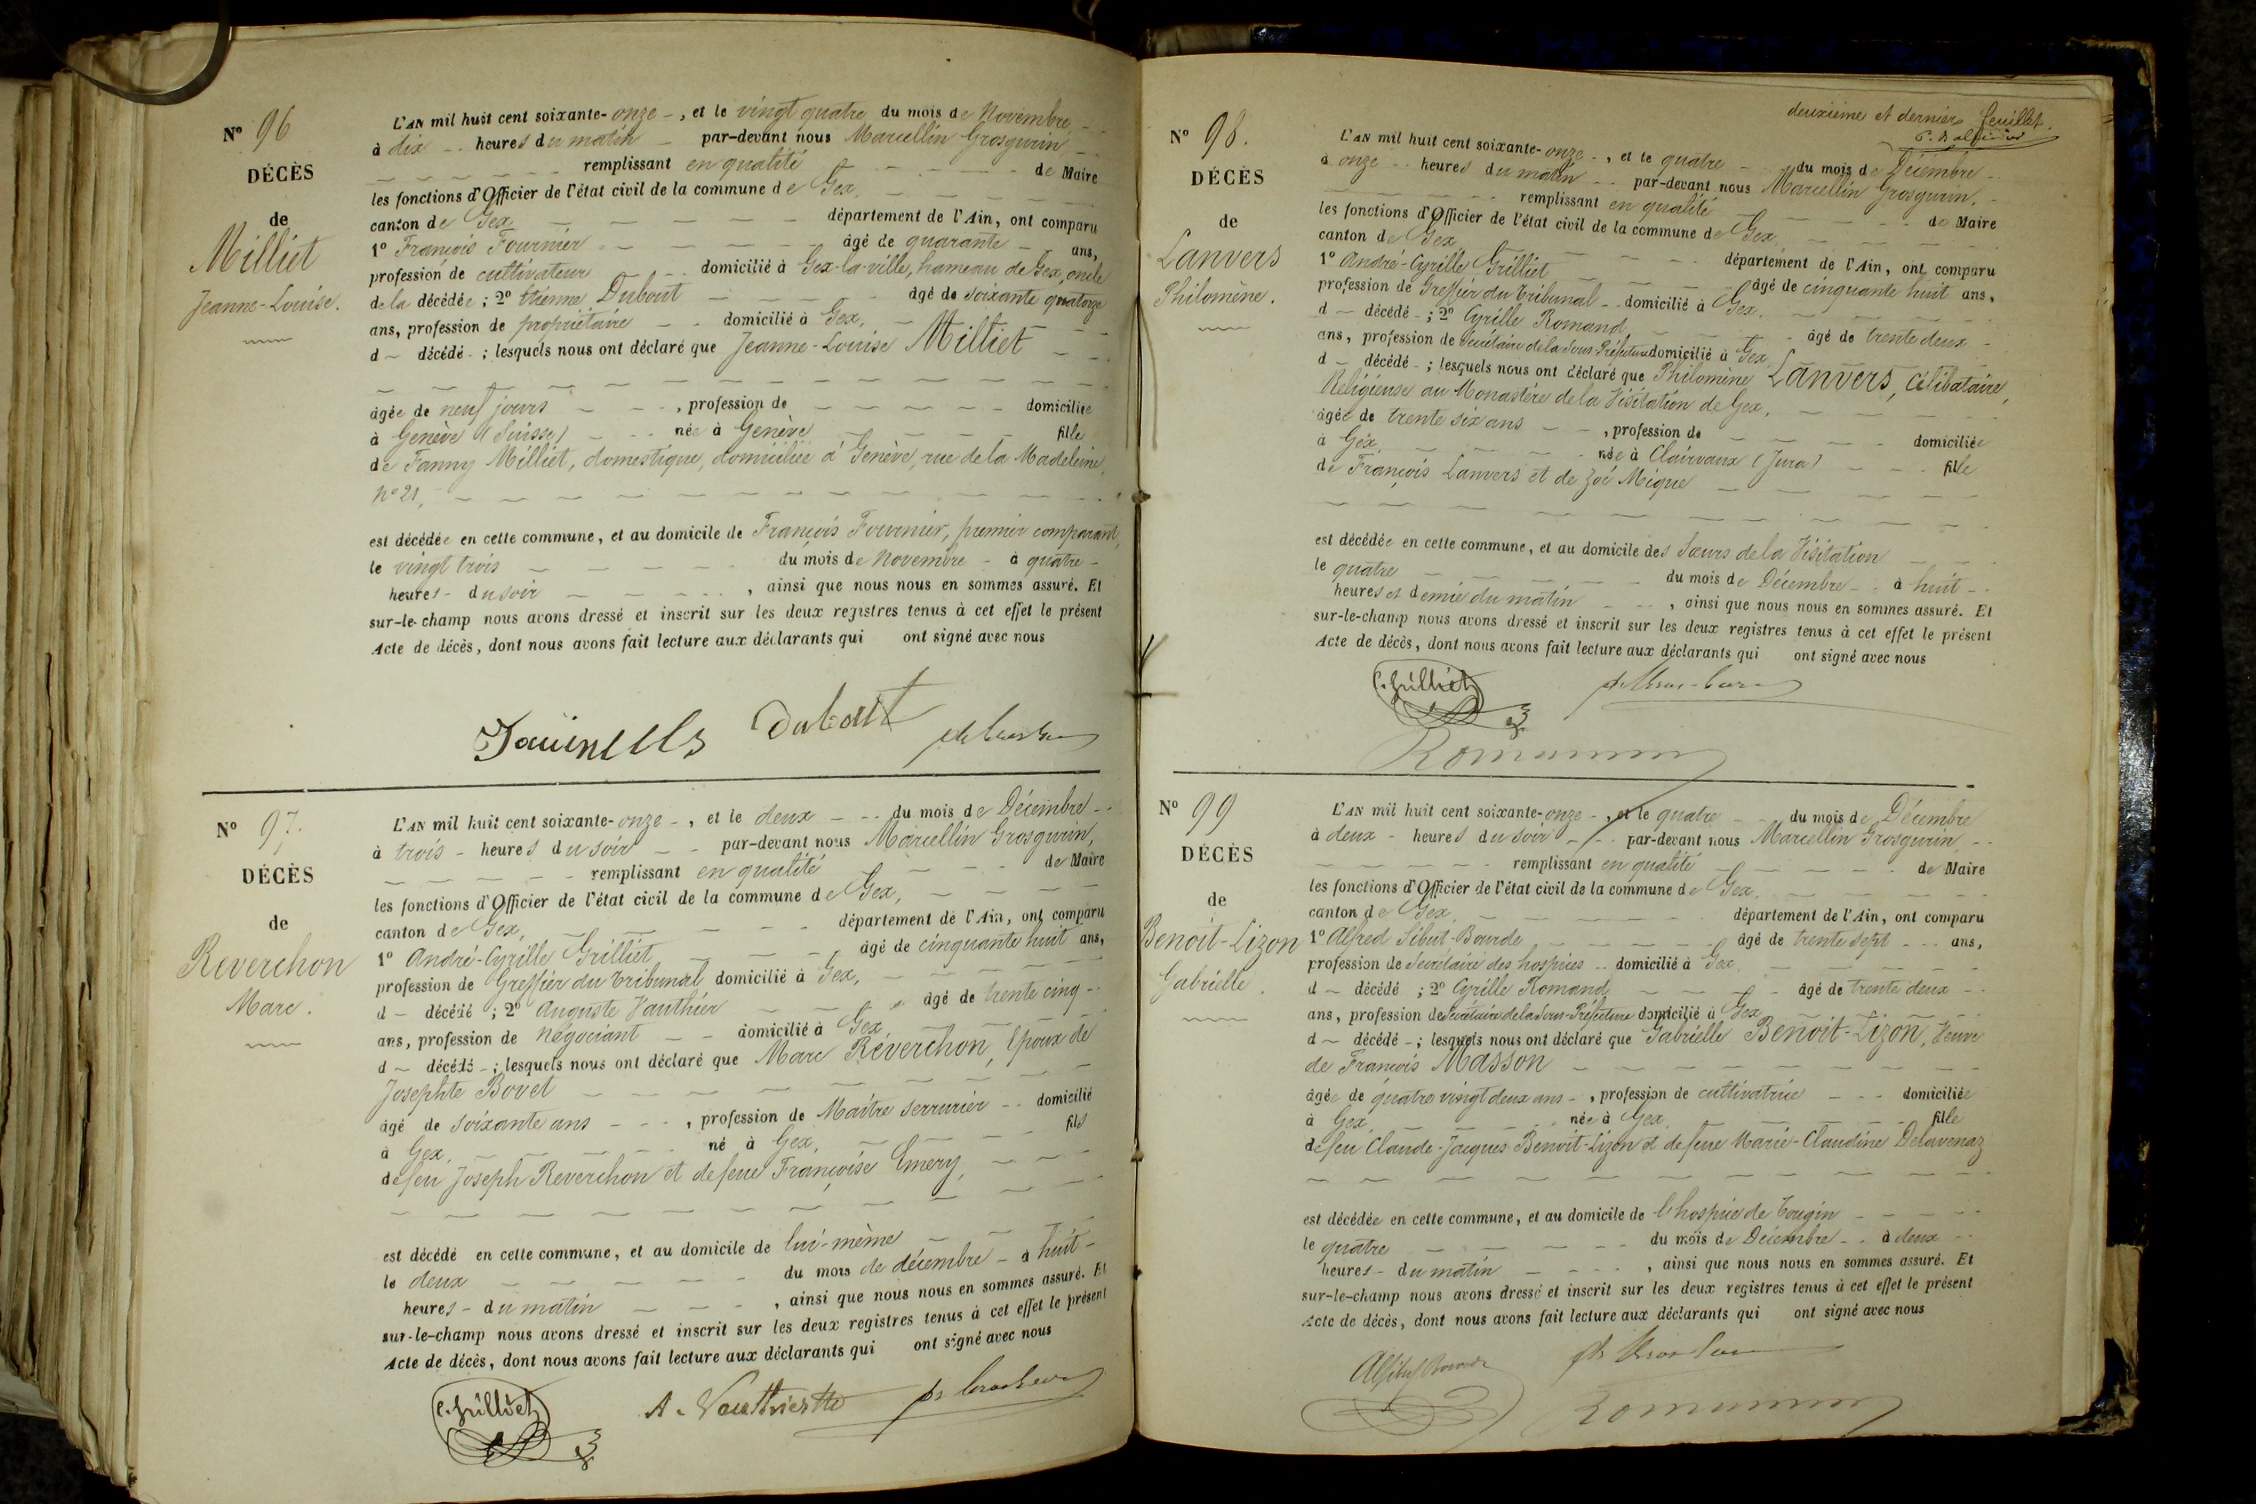 Nº 96
DÉCÈS
de
Milliet
Jeanne-Louise.
L'AN mil huit cent soixante-onze -, et le vingt quatre du mois de Novembre
à dix heures du matin par-devant nous Marcellin Grosgurin
remplissant en qualité de Maire
les fonctions d'Officier de l'état civil de la commune de Gex
canton de Gex département de l'Ain, ont comparu
1º François Fournier âgé de quarante ans,
profession de cultivateur domicilié à Gex-la-ville, hameau de Gex, oncle
de la décédée ; 2º Etienne Dubout âgé de soixante quatorze
ans, profession de propriétaire domicilié à Gex,
d décédé ; lesquels nous ont déclaré que Jeanne-Louise Milliet
âgée de neuf jours , profession de domiciliée
à Genève (Suisse) née à Genève fille
de Fanny Milliet, domestique, domiciliée à Genève, rue de la Madeleine,
nº 21,
est décédée en cette commune, et au domicile de François Fournier, premier comparant,
le vingt trois du mois de Novembre à quatre
heures du soir , ainsi que nous nous en sommes assuré. Et
sur-le-champ nous avons dressé et inscrit sur les deux registres tenus à cet effet le présent
Acte de décès, dont nous avons fait lecture aux déclarants qui ont signé avec nous
Dubout
Nº 97.
DÉCÈS
de
Reverchon
Marc.
L'AN mil huit cent soixante-onze -, et le deux du mois de Décembre
à trois heures du soir par-devant nous Marcellin Grosgurin,
remplissant en qualité de Maire
les fonctions d'Officier de l'état civil de la commune de Gex,
canton de Gex, département de l'Ain, ont comparu
1º André-Cyrille Grilliet âgé de cinquante huit ans,
profession de Greffier du Tribunal domicilié à Gex,
d décédé ; 2º Auguste Vauthier âgé de trente cinq
ans, profession de Négociant domicilié à Gex,
d décédé ; lesquels nous ont déclaré que Marc Reverchon, Epoux de
Josephte Bovet
âgé de soixante ans , profession de Maître serrurier domicilié
à Gex, né à Gex, fils
de feu Joseph Reverchon et de feue Françoise Emery,
est décédé en cette commune, et au domicile de lui-même
le deux du mois de décembre à huit
heures du matin , ainsi que nous nous en sommes assuré. Et
sur-le-champ nous avons dressé et inscrit sur les deux registres tenus à cet effet le présent
Acte de décès, dont nous avons fait lecture aux déclarants qui ont signé avec nous
C. Grilliet
deuxième et dernier feuillet.
Nº 98.
DÉCÈS
de
Lanvers
Philomène.
L'AN mil huit cent soixante-onze -, et le quatre du mois de Décembre
à onze heures du matin par-devant nous Marcellin Grosgurin,
remplissant en qualité de Maire
les fonctions d'Officier de l'état civil de la commune de Gex,
canton de Gex département de l'Ain, ont comparu
1º André-Cyrille Grilliet âgé de cinquante huit ans,
profession de Greffier du Tribunal domicilié à Gex,
d décédé ; 2º Cyrille Romand âgé de trente deux
ans, profession de Secrétaire de la Sous-Préfecture domicilié à Gex
d décédé ; lesquels nous ont déclaré que Philomène Lanvers, célibataire,
Religieuse au Monastère de la Visitation de Gex,
âgée de trente six ans , profession de domiciliée
à Gex, née à Clairvaux (Jura) fille
de François Lanvers et de Zoé Mique
est décédée en cette commune, et au domicile des Sœurs de la Visitation
le quatre du mois de Décembre à huit
heures et demie du matin , ainsi que nous nous en sommes assuré. Et
sur-le-champ nous avons dressé et inscrit sur les deux registres tenus à cet effet le présent
Acte de décès, dont nous avons fait lecture aux déclarants qui ont signé avec nous
C. Grilliet
Nº 99
DÉCÈS
de
Benoit-Lizon
Gabrielle.
L'AN mil huit cent soixante-onze -, et le quatre du mois de Décembre
à deux heures du soir par-devant nous Marcellin Grosgurin,
remplissant en qualité de Maire
les fonctions d'Officier de l'état civil de la commune de Gex,
canton de Gex, département de l'Ain, ont comparu
1º Alfred Sibut-Bourde âgé de trente sept ans,
profession de Secrétaire des hospices domicilié à Gex,
d décédé ; 2º Cyrille Romand âgé de trente deux
ans, profession de Secrétaire de la Sous-Préfecture domicilié à Gex
d décédé ; lesquels nous ont déclaré que Gabrielle Benoit-Lizon, Veuve
de François Masson
âgée de quatre vingt deux ans , profession de cultivatrice domiciliée
à Gex, née à Gex, fille
de feu Claude-Jacques Benoit-Lizon et de feue Marie-Claudine Delavenaz
est décédée en cette commune, et au domicile de l'hospice de Tougin
le quatre du mois de Décembre à deux
heures du matin , ainsi que nous nous en sommes assuré. Et
sur-le-champ nous avons dressé et inscrit sur les deux registres tenus à cet effet le présent
Acte de décès, dont nous avons fait lecture aux déclarants qui ont signé avec nous